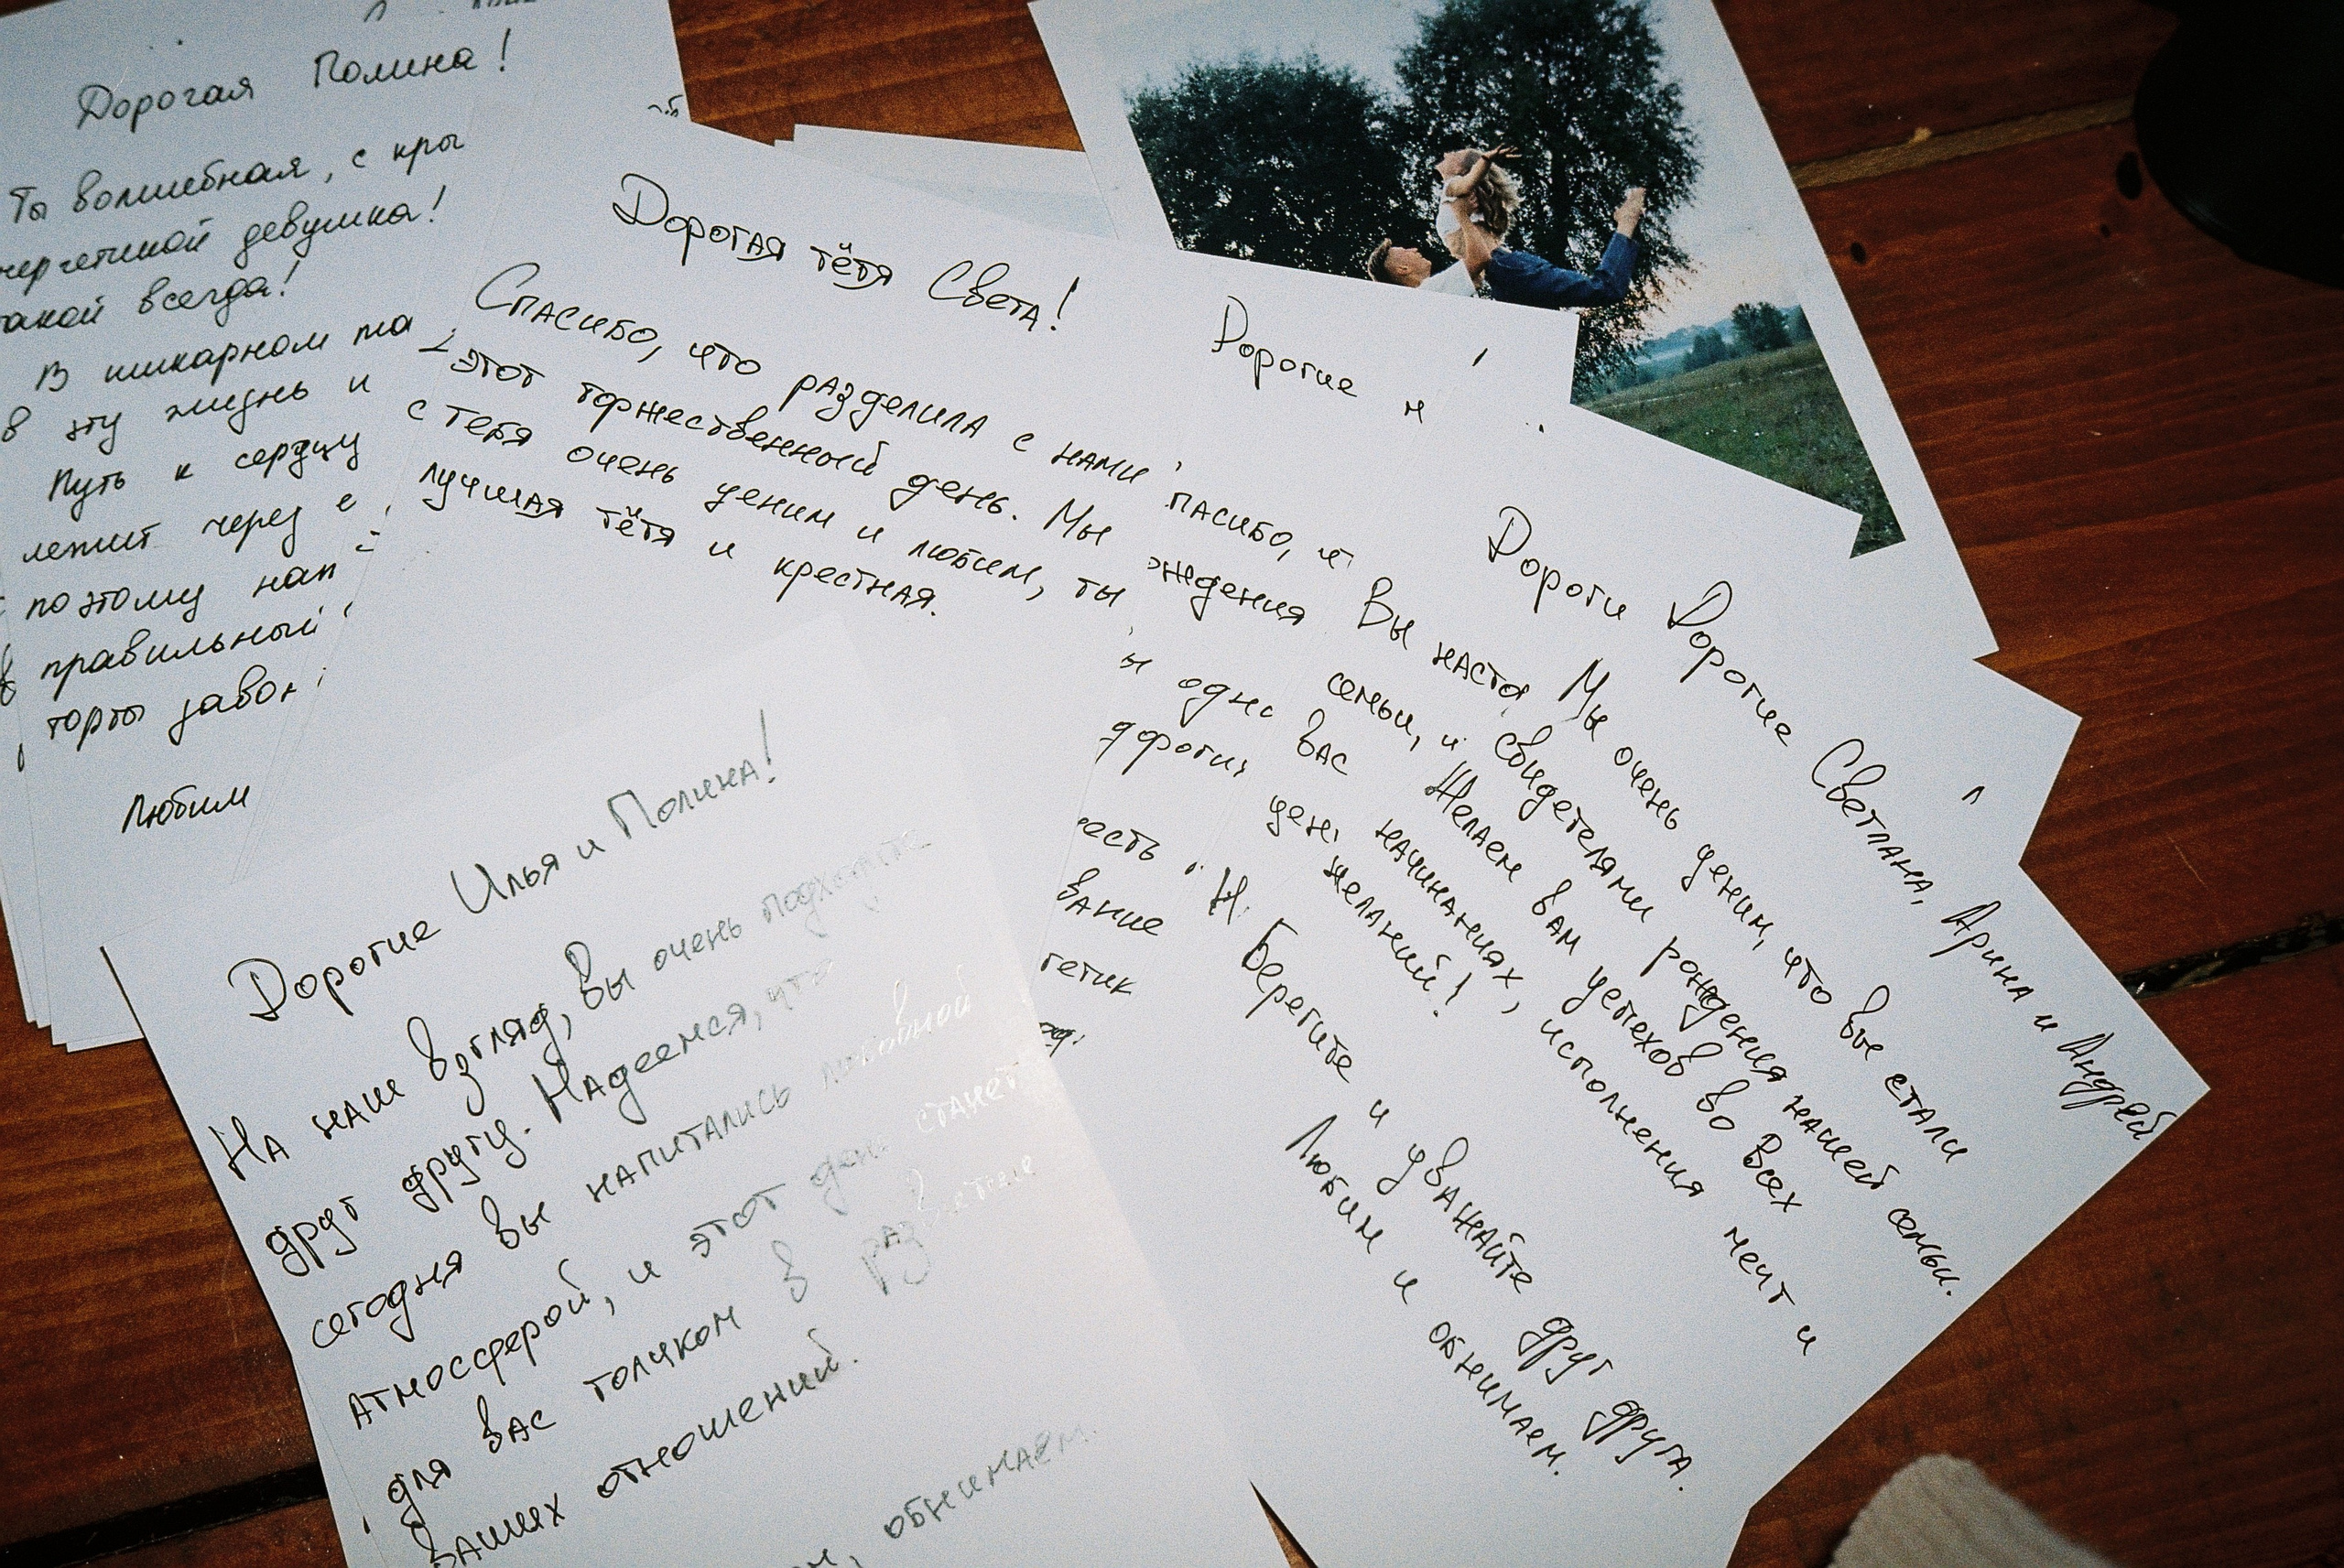 Дорогая Полина!
Ты волшебная, с кры
девушка!
всегда!
В шикарном та
в эту жизнь и
Путь к сердцу
лежит через
поэтому нап
правильный
торты завон
Любим
Дорогая тётя Света!
Спасибо, что разделила с нами
этот торжественный день. Мы
тебя очень ценим и любим, ты
лучшая тётя и крестная.
Дорогие
пасибо,
ждения
ы одно
дороги
есть
вание
гетик
Дороги
Вы насто
семьи, и
вас
цени
Н
Дорогие Светлана, Арина и Андрей
Мы очень ценим, что вы стали
свидетелями рождения нашей семьи.
Желаем вам успехов во всех
начинаниях, исполнения мечт и
желаний!
Берегите и уважайте друг друга.
Любим и обнимаем.
Дорогие Илья и Полина!
На наш взгляд, вы очень подходите
друг другу. Надеемся, что
сегодня вы напитались любовной
атмосферой, и этот день станет
для вас толчком в развитие
ваших отношений.
обнимаем.